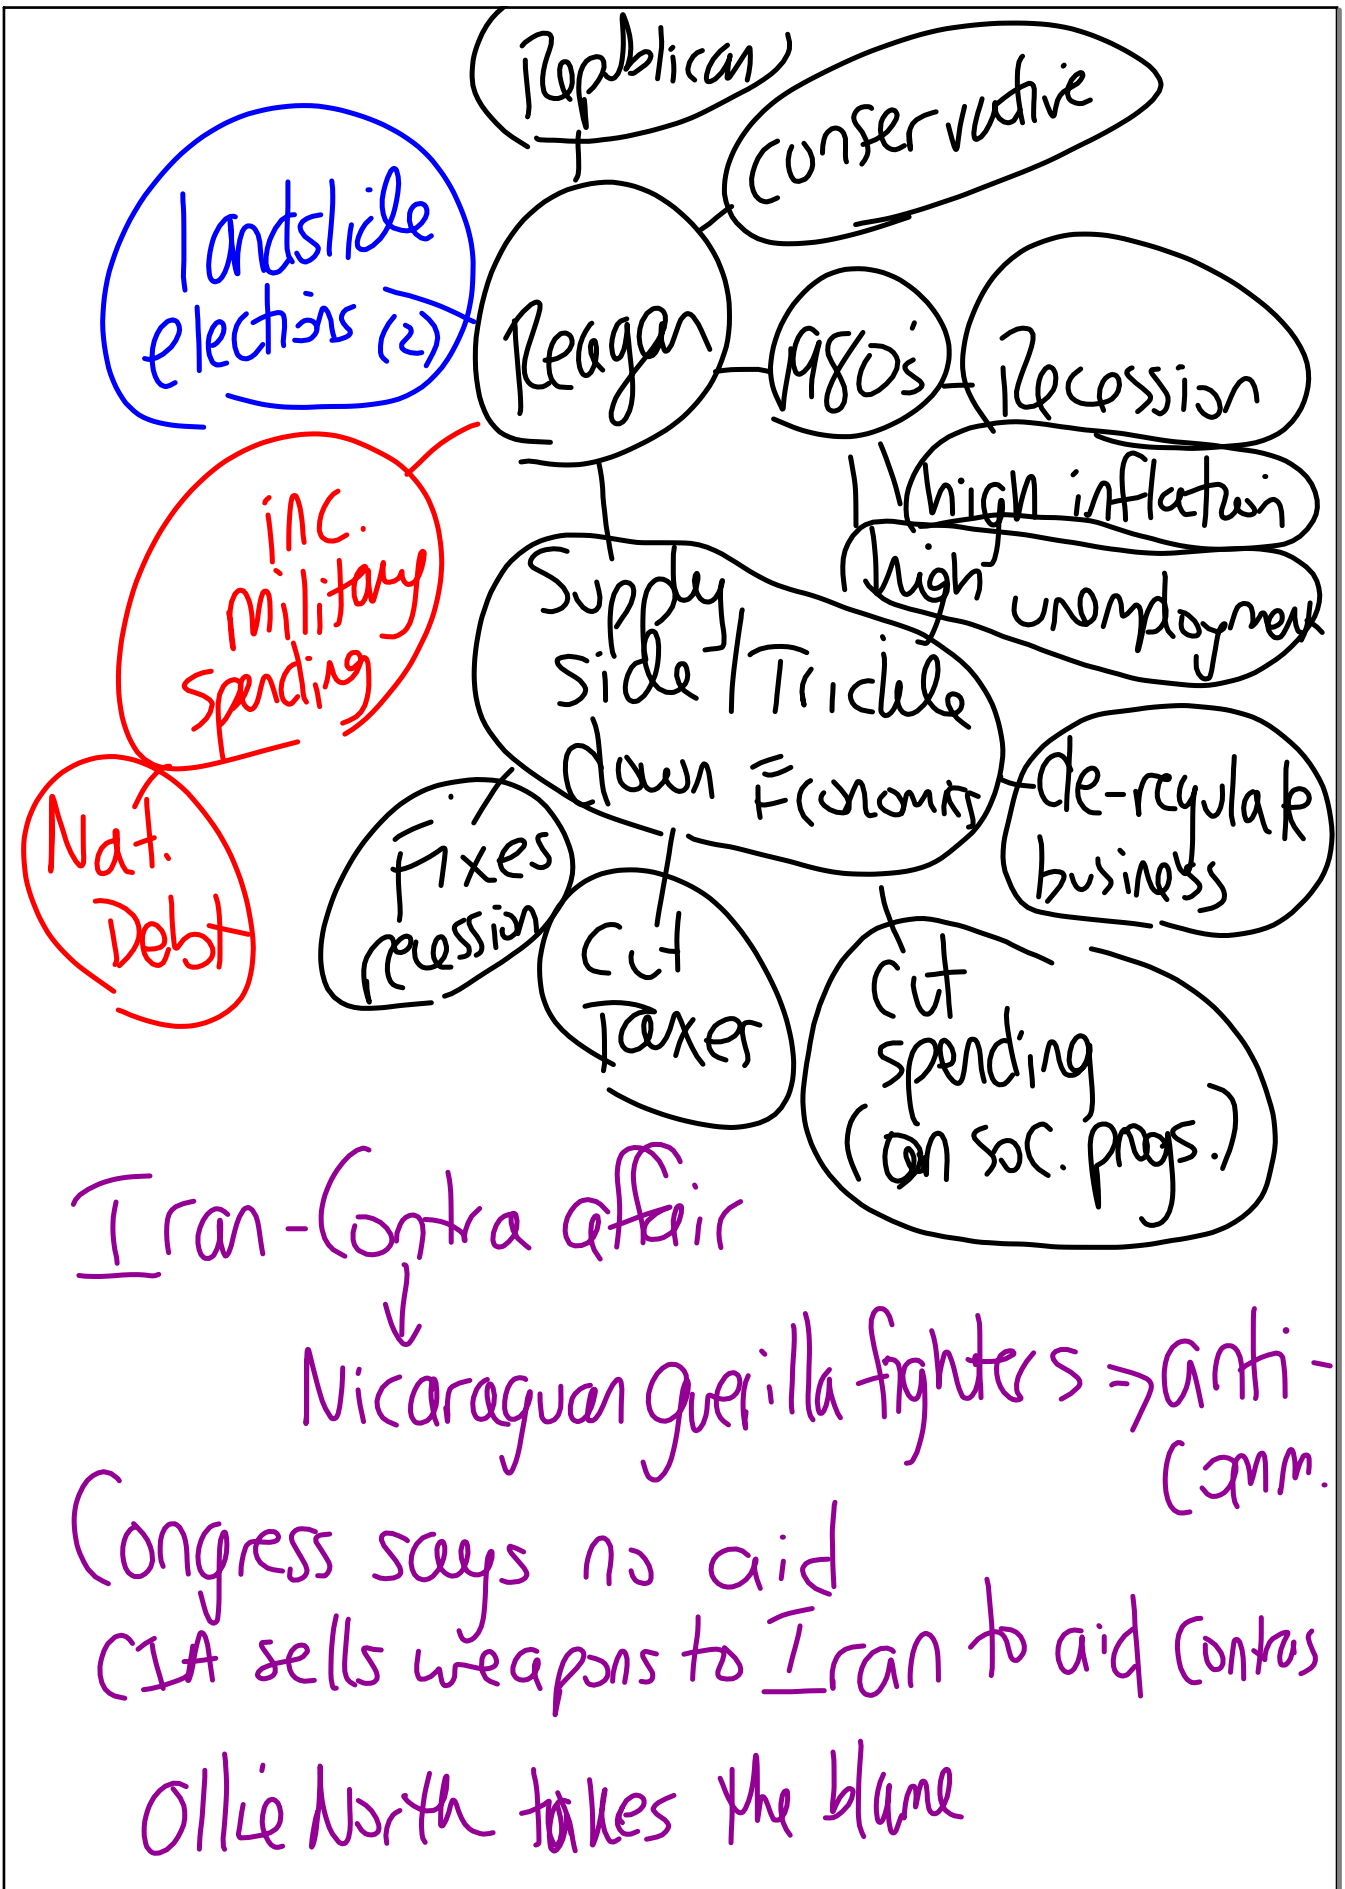 Republican
conservative
landslide
elections (2)
Reagan
1980s
Recession
high inflation
high
unemployment
inc.
military
spending
Nat.
Debt
Supply
side/Trickle
down Economics
Fixes
recession
cut
Taxes
cut
spending
(on soc. progs.)
de-regulate
business
Iran-Contra affair
Nicaraguan guerilla fighters → anti-
comm.
Congress says no aid
CIA sells weapons to Iran to aid Contras
Ollie North takes the blame